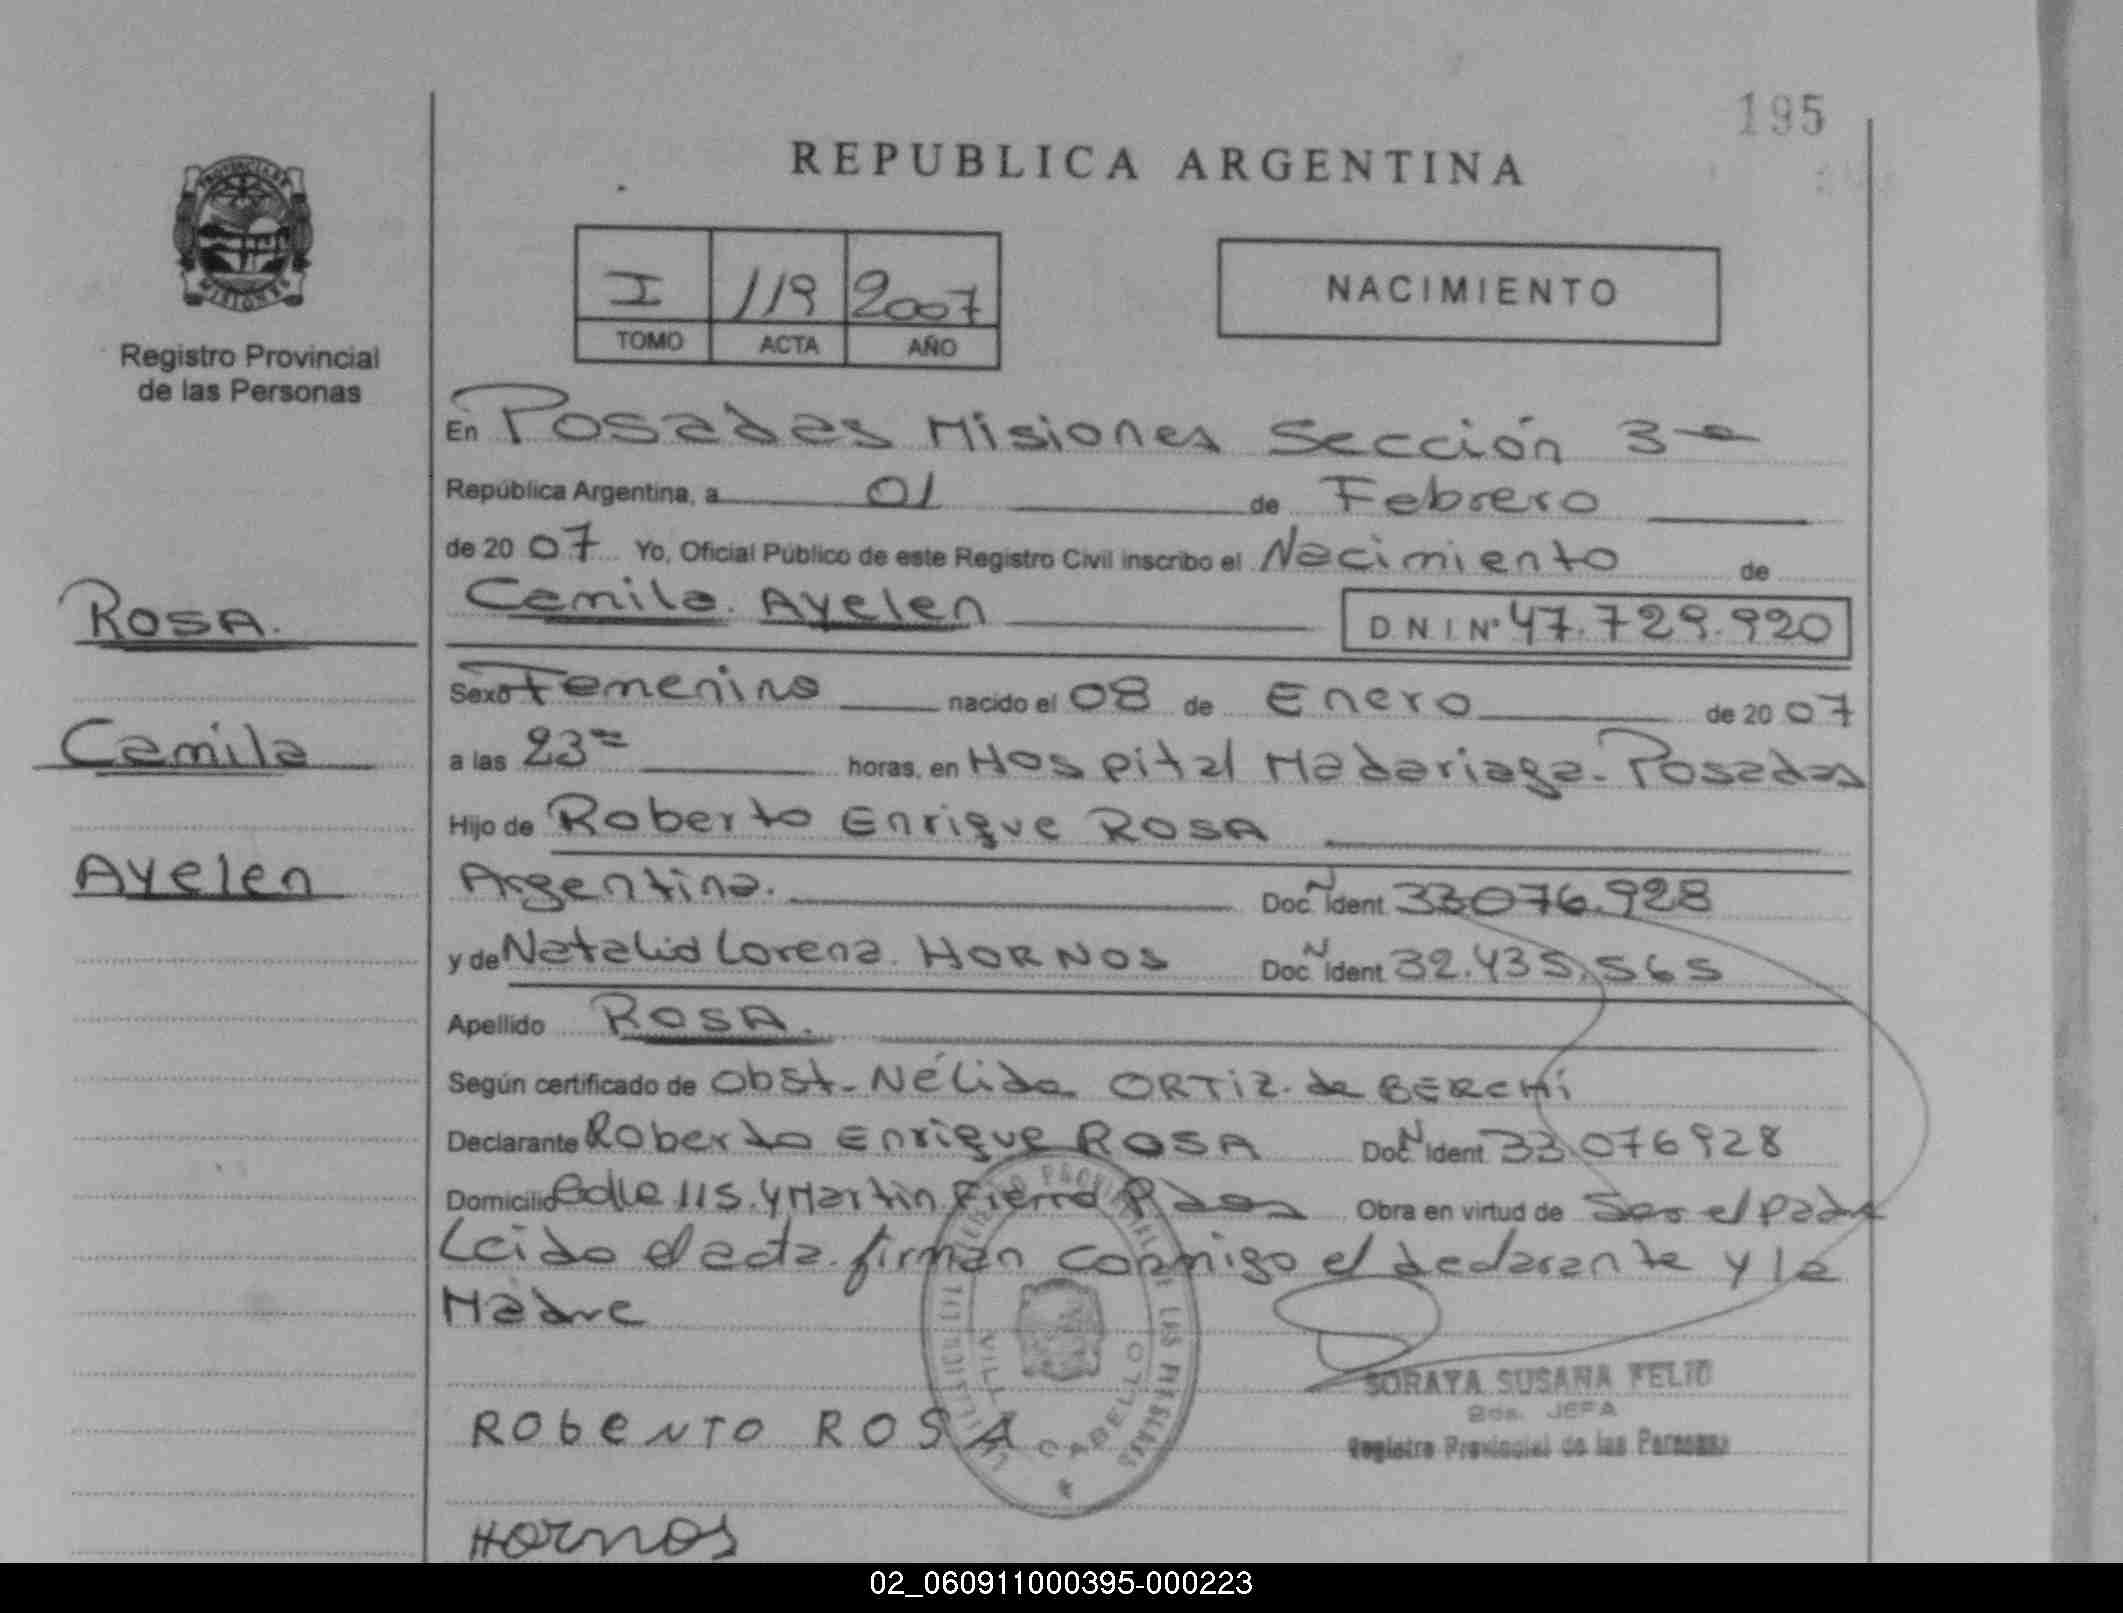 195
REPUBLICA ARGENTINA
PROVINCIA DE
MISIONES
Registro Provincial
de las Personas
I 119 2007
TOMO ACTA AÑO
NACIMIENTO
En Posadas Misiones Sección 3a
República Argentina, a 01 de Febrero
de 2007 Yo, Oficial Público de este Registro Civil inscribo el Nacimiento de
ROSA. Camila. Ayelen DNI Nº 47.729.920
Sexo Femenino nacido el 08 de Enero de 2007
Camila a las 23 horas, en Hospital Madariaga-Posadas
Hijo de Roberto Enrique ROSA
Ayelen Argentina. Doc. N Ident 33076.928
y de Natalia Lorena. HORNOS Doc. N Ident 32.435.565
Apellido ROSA.
Según certificado de Obst-Nélida ORTIZ. de BERCHI
Declarante Roberto Enrique ROSA Doc. N Ident 33.076928
Domicilio Calle 115. y Martin Fierro Obra en virtud de Ser el padre
Leida el acta. firman conmigo el declarante y la
Madre
VILLA CABELLO
SORAYA SUSANA FELIU
2da. JEFA
Registro Provincial de las Personas
RobeNTO ROSA
HORNOS
02_060911000395-000223